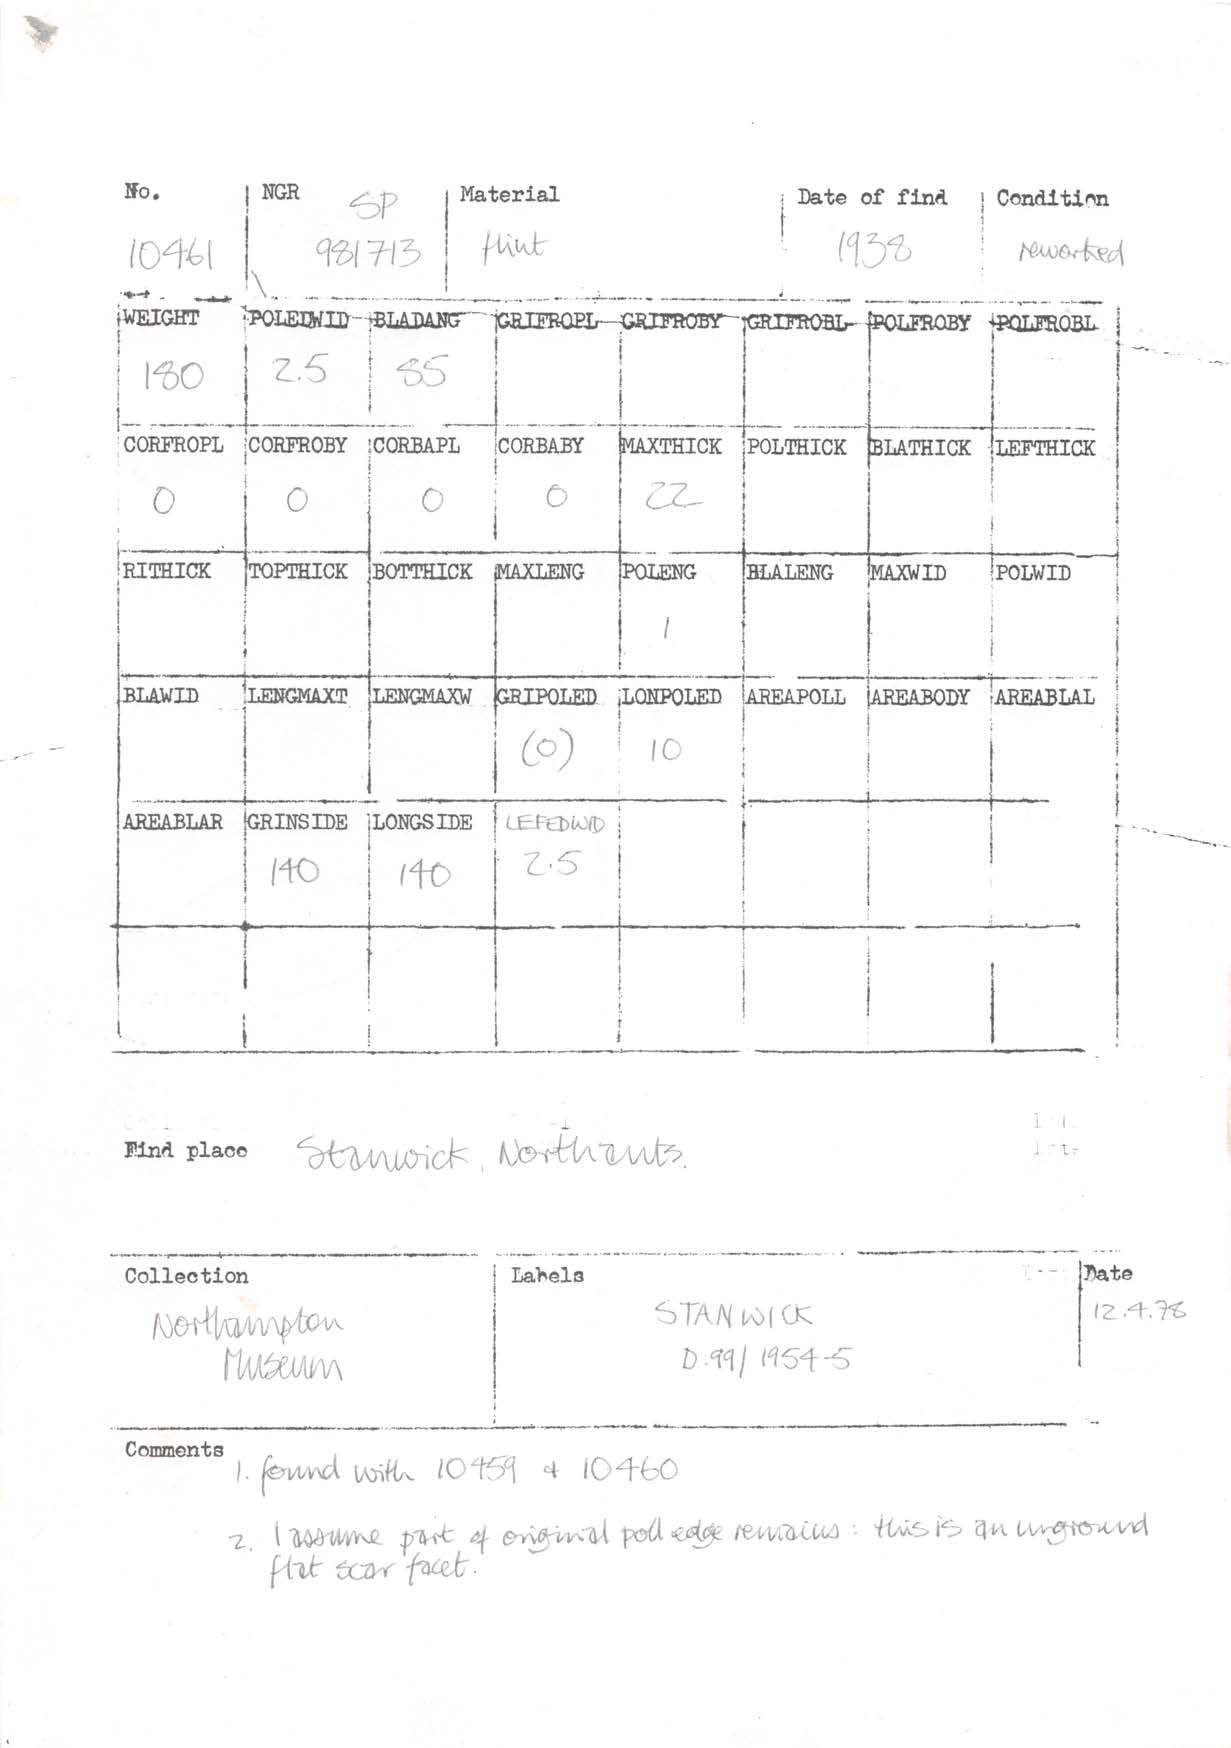 No. NGR SP Material Date of find Condition
10461 981713 flint 1938 reworked
WEIGHT POLEDWID BLADANG GRIFROPL GRIFROBY GRIFROBL POLFROBY POLFROBL
180 2.5 85
CORFROPL CORFROBY CORBAPL CORBABY MAXTHICK POLTHICK BLATHICK LEFTHICK
0 0 0 0 22
RITHICK TOPTHICK BOTTHICK MAXLENG POLENG BLALENG MAXWID POLWID
1
BLAWID LENGMAXT LENGMAXW GRIPOLED LONPOLED AREAPOLL AREABODY AREABLAL
(0) 10
AREABLAR GRINSIDE LONGSIDE LEFEDWID
140 140 2.5
Find place Stanwick, Northants.
Collection Labels Date
Northampton STANWICK 12.4.78
Museum D.99/1954-5
Comments
1. found with 10459 & 10460
2. I assume part of original poll edge remains: this is an unground
flat scar facet.